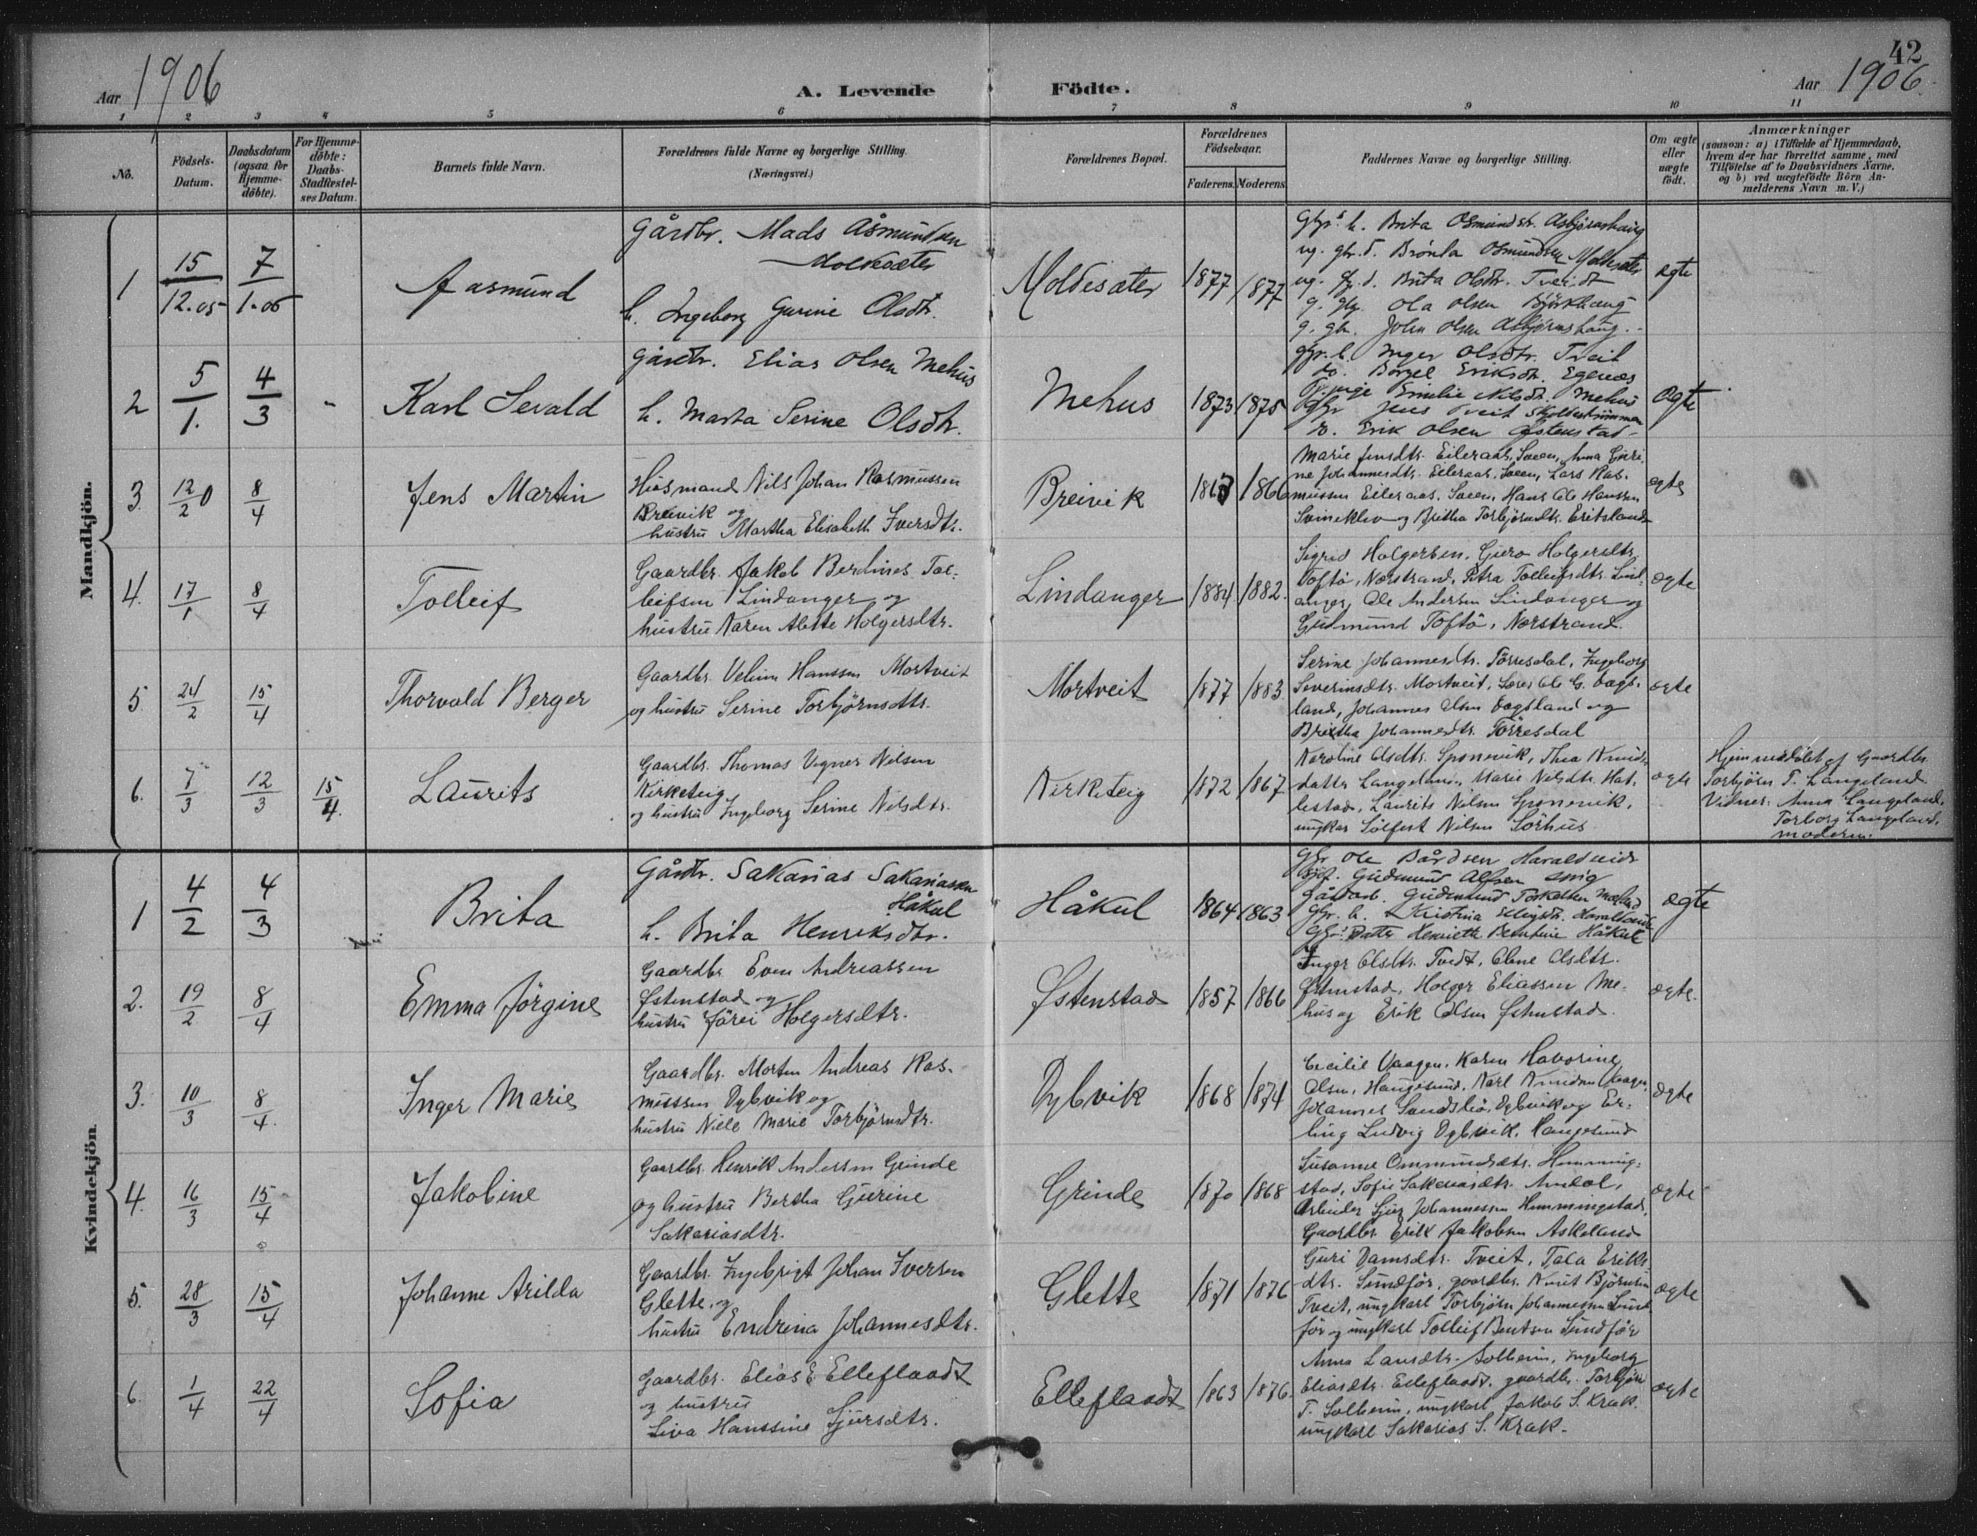 42
Aar 1906
A. Levende Födte.
Aar 1906.
1 2 3 4 5 6 7 8 9 10 11
No.
Födsels-Datum.
Daabsdatum (ogsaa for Hjemme-döbte).
For Hjemme-döbte: Daabs-Stadfæstel-ses Datum.
Barnets fulde Navn.
Forældrenes fulde Navne og borgerlige Stilling. (Næringsvei.)
Forældrenes Bopæl.
Forældrenes Födselsaar.
Faderens. Moderens.
Faddernes Navne og borgerlige Stilling.
Om ægte eller uægte födt.
Anmærkninger
(saasom: a) i Tilfælde af Hjemmedaab,
hvem der har forrettet samme, med
Tilföielse af to Daabsvidners Navne,
og b) ved uægtefödte Börn An-
melderens Navn m. V.)
Mandkjön.
1 15/12.05 7/1-06 Aasmund
Gårdbr. Mads Åsmundsen
Moldesæter
h. Ingeborg Gurine Olsdtr.
Moldesæter 1877 1877
Brita Osmundstr. Asbjørnshaug
Osmundsen Moldesæter
Brita Olsdtr. Tveidt
Ola Olsen Björkhaug
John Olsen Asbjørnshaug.
ægte
2 5/1. 4/3 - Karl Sevald
Gårdbr. Elias Olsen Mehus
h. Marta Serine Olsdtr.
Mehus 1873 1875
Inger Olsdtr. Tveit
do. Børgel Eriksdtr. Egenæs
Emilie Nilsdtr. Mehus
Jens Tveit Skjoldastrømmen
do. Erik Olsen Østenstad
ægte
3. 12/2 0 8/4 Jens Martin
Husmand Nils Johan Rasmussen
Breivik og
hustru Martha Elisabeth Iversdtr.
Breivik 1867 1866
Marie Jensdtr. Eileraas, Soeen, Anna Guri-
ne Johannesdtr. Eileraas, Soeen, Lars Ras-
mussen Eileraas, Soeen, Hans Ole Hanssen
Svineklev og Britha Torbjörnsdtr. Eritsland
ægte
4. 17/1 8/4 Tolleif
Gaardbr. Jakob Berdines Tol-
leifsen Lindanger og
hustru Karen Alette Holgersdtr.
Lindanger 1884 1882.
Sigrid Holgersen, Guro Holgersdtr.
Toftö, Nærstrand, Petra Tolleifsdtr. Lind-
anger, Ole Andersen Lindanger og
Gudmund Toftö, Nærstrand.
ægte
5. 24/2 15/4 Thorvald Berger
Gaardbr. Velum Hanssen Mortveit
og hustru Serine Torbjörnsdtr.
Mortveit 1877 1883
Serine Johannesdtr. Törresdal, Ingeborg
Severinsdtr. Mortveit, Lars Ole G. Vags-
land, Johannes Olsen Vagsland og
Britha Johannesdtr. Törresdal
ægte
6. 7/3 12/3 15/4. Laurits
Gaardbr. Thomas Vigner Nilsen
Kirketeig
og hustru Ingeborg Serine Nilsdtr.
Kirketeig 1872 1867
Karoline Olsdtr. Sponevik, Thea Knuds-
datter Langeland, Marie Nilsdtr. Hat-
lestad, Laurits Nilsen Sponevik,
ungkar Sölfest Nilsen Sörhus
ægte
Hjemmedöbt af Gaardbr.
Torbjörn T. Langeland
Vidner: Anna Langeland,
Torborg Langeland,
moderen.
Kvindekjön.
1 4/2 4/3 Brita
Gårdbr. Sakarias Sakariassen
Håkul
h. Brita Henriksdtr.
Håkul 1864 1863
Gbr. Ole Bårdsen Haraldseide
Gudmund Alfsen
Gårdarb. Gudmund Torkelsen
Gbr. h. Kristina Haraldseide
Datter Henriette Bentine Håkul
ægte
2. 19/2 8/4 Emma Jörgine
Gaardbr. Even Andreassen
Østenstad og
hustru Jörei Holgersdtr.
Østenstad 1857 1866
Inger Olsdtr. Tvedt, Oline Olsdtr.
Østenstad, Holger Eliassen Me-
hus og Erik Olsen Østenstad.
ægte.
3. 10/3 8/4. Inger Marie
Gaardbr. Morten Andreas Ras-
mussen Dybvik og
hustru Niele Marie Torbjörnsdtr.
Dybvik 1868 1874
Cecilie Vaagen, Karen Havorine
Olsen, Haugesund, Karl Knudsen Vaagen,
Johannes Sandsbö, Dybvik og Er-
ling Ludvig Dybvik, Haugesund
ægte
4. 16/3 15/4 Jakobine
Gaardbr. Henrik Andersen Grinde
og hustru Bertha Gurine
Sakariasdtr.
Grinde 1870 1868
Susanne Ommundsdtr. Hemming-
stad, Sofie Sakariasdtr. Amdal,
Arbeider Sjur Johannessen Hemmingstad,
Gaardbr. Erik Jakobsen Askeland
ægte
5. 28/3 15/4 Johanne Arilda
Gaardbr. Ingebrigt Johan Iversen
Glette, og
hustru Endrina Johannesdtr.
Glette 1871 1876
Guri Damsdtr. Tveit, Tala Eriks-
dtr. Sundför, gaardbr. Knut Björnsen
Tveit, ungkarl Torbjörn Johannessen Sund-
för og ungkarl Tolleif Bentsen Sundför
ægte
6. 1/4 22/4 Sofia
Gaardbr. Elias E. Elleflaadt
og hustru
Siva Hanssine Sjursdtr.
Elleflaadt 1863 1876.
Anna Larsdtr. Solheim, Ingeborg
Eliasdtr. Elleflaadt, gaardbr. Torbjörn
T. Solheim, ungkarl Jakob S. Krak.
ungkarl Sakarias S. Krak.
ægte